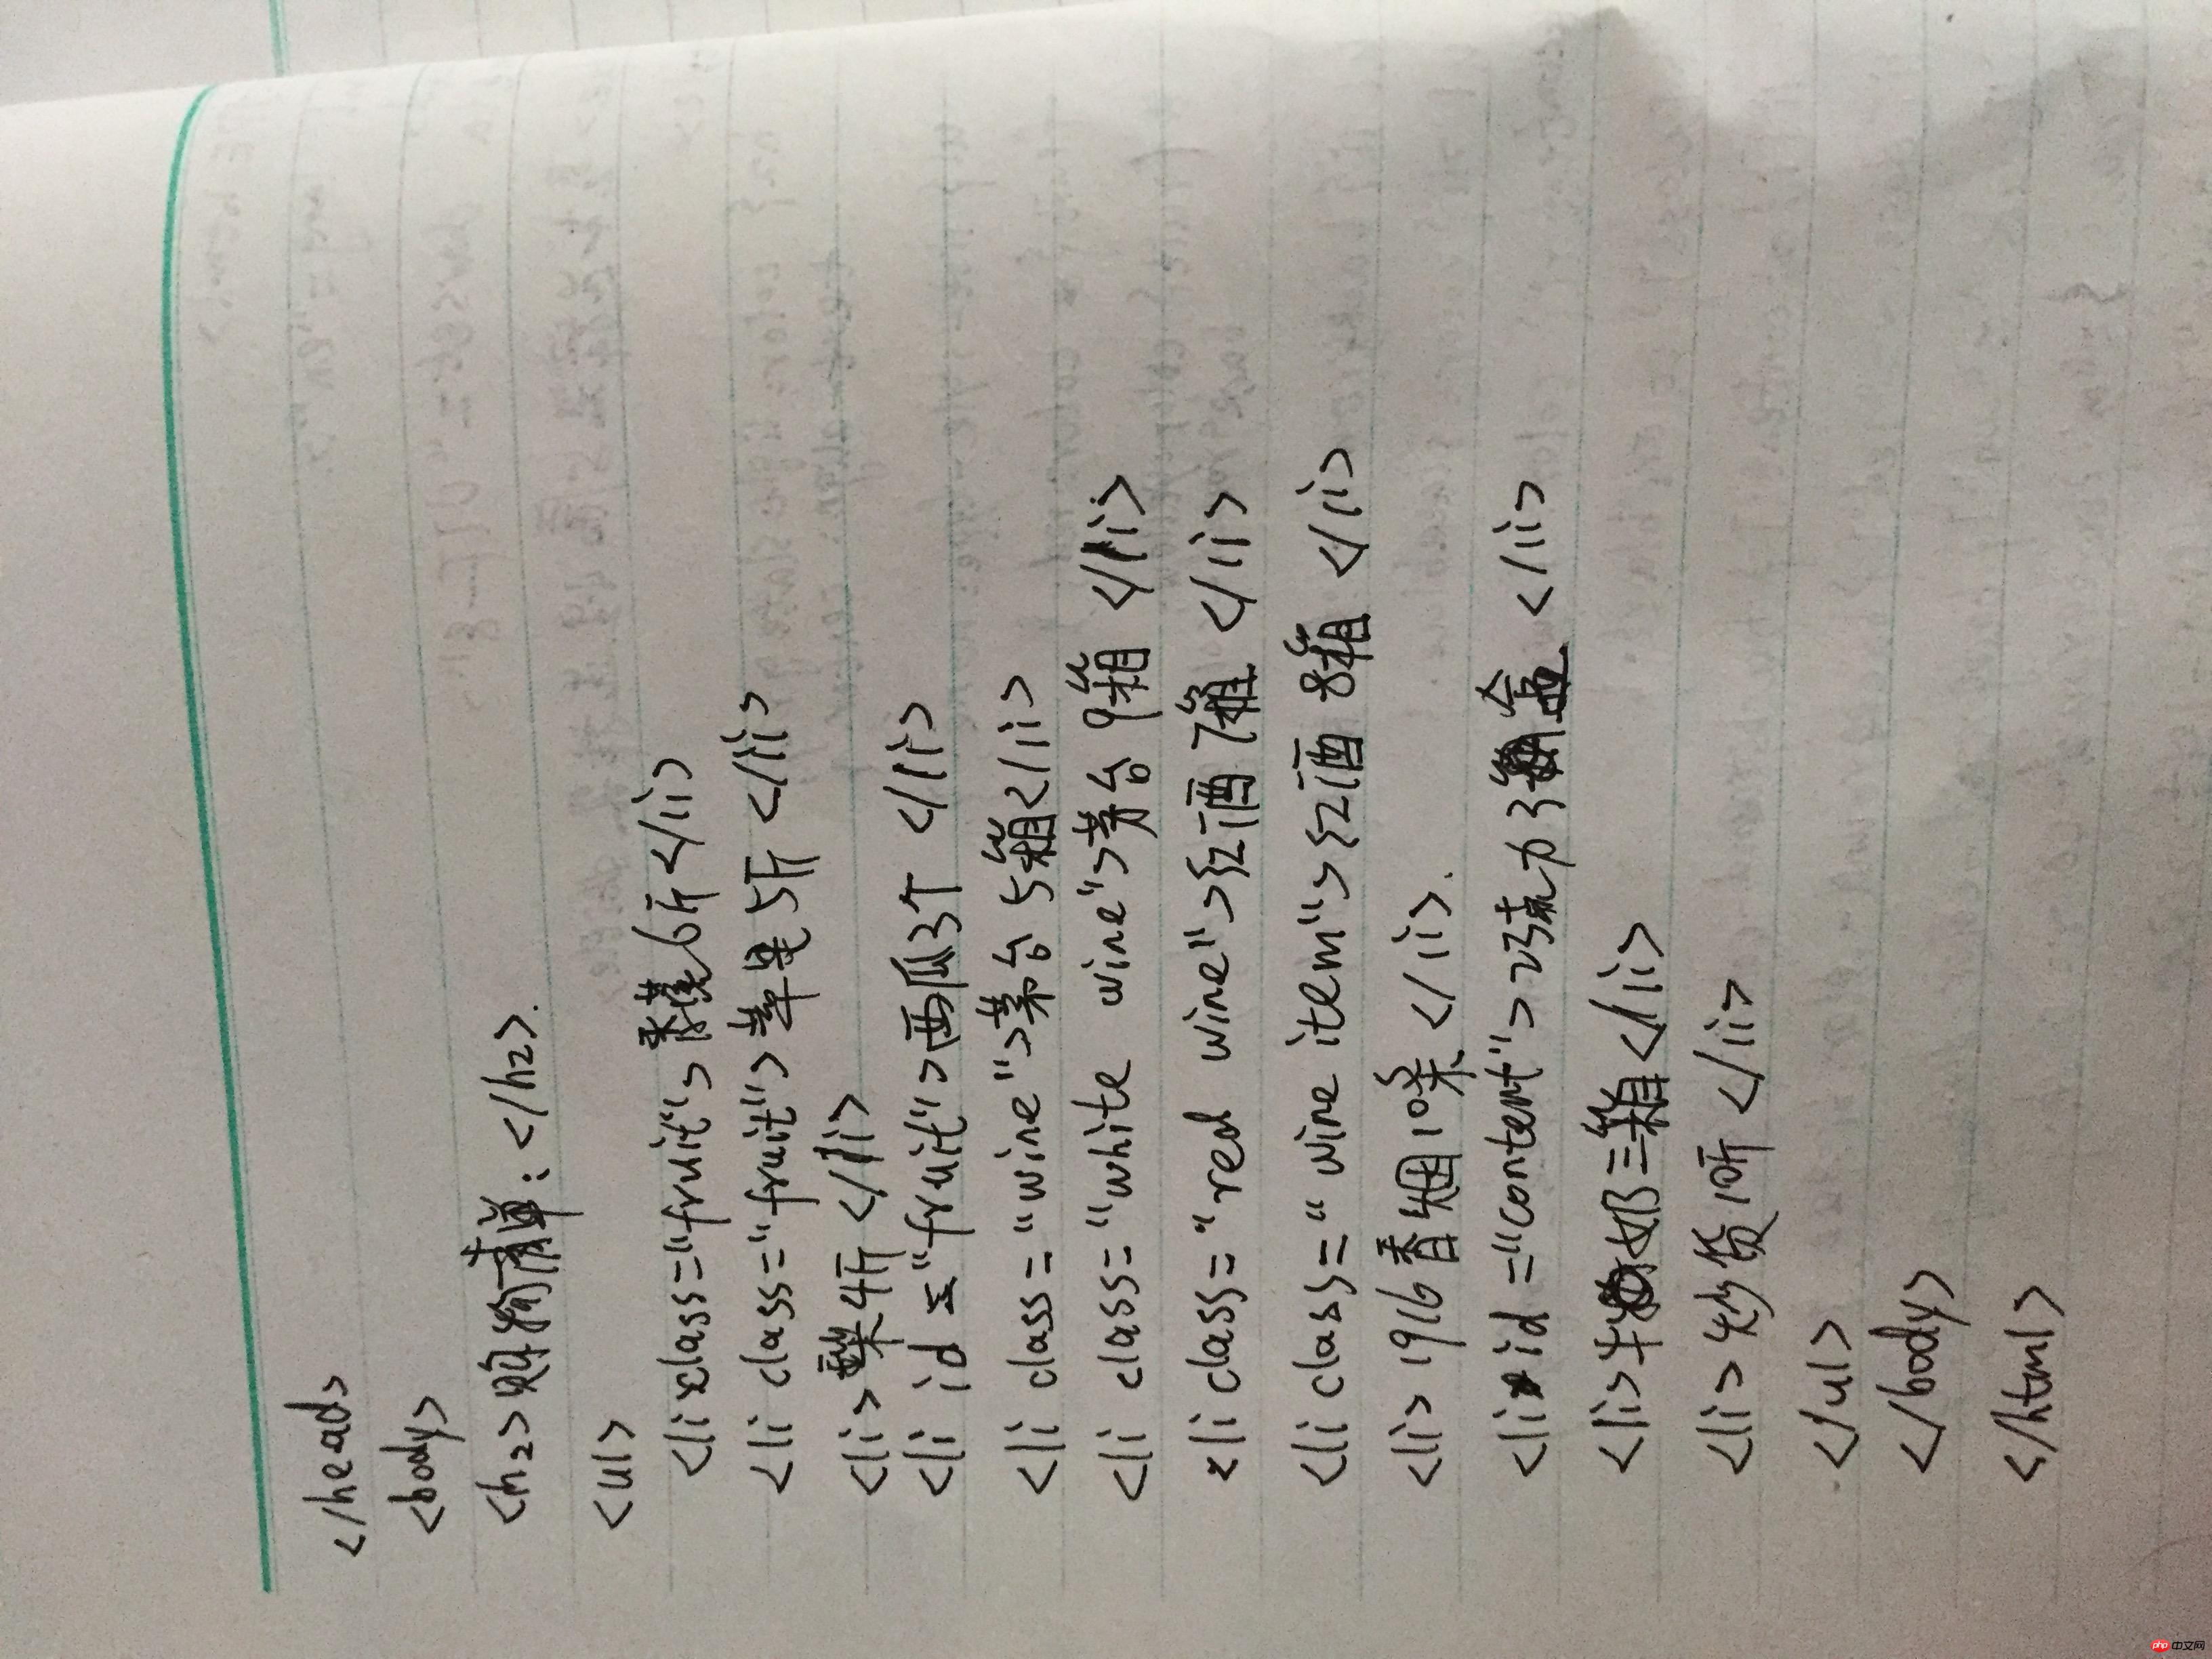 </head>
<body>
<h2>购物清单:</h2>.
<ul>
<li class="fruit">香蕉6斤</li>
<li class="fruit">苹果5斤</li>
<li>梨4斤</li>
<li id="fruit">西瓜3个</li>
<li class="wine">茅台5箱</li>
<li class="white wine">茅台9箱</li>
<li class="red wine">红酒7箱</li>
<li class="wine item">红酒8箱</li>
<li>1916香烟10条</li>.
<li id="content">巧克力3盒</li>
<li>牛奶三箱</li>
<li>炒货10斤</li>
</ul>
</body>
</html>
php 中文网